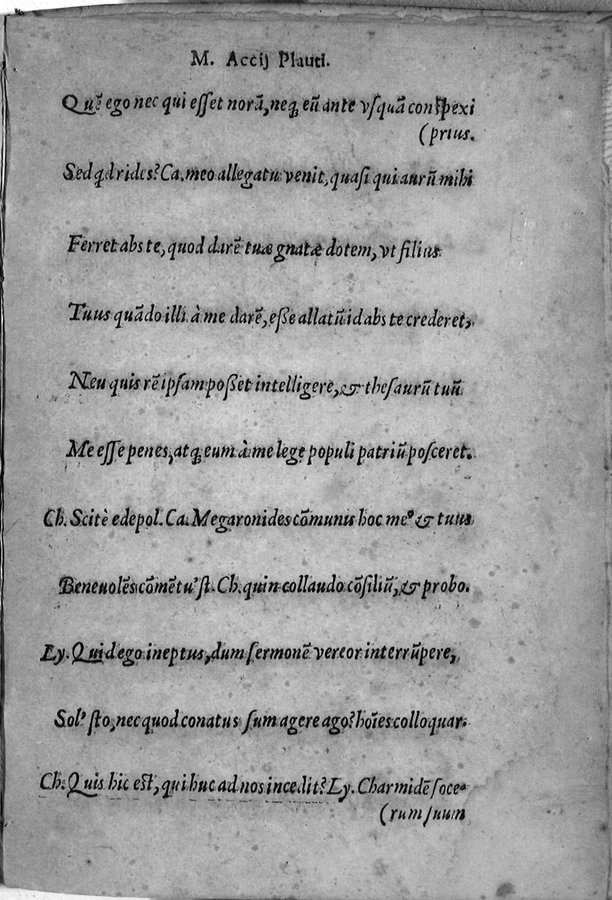 M. Accij Plauti.
Quẽ ego nec qui eſſet norã, neq; eũ ante vſquã conſpexi
(prius.
Sed qd rides? Ca. meo allegatu venit, quaſi qui aurũ mihi
Ferret abs te, quod darẽ tuæ gnatæ dotem, vt filius
Tuus quãdo illi à me darẽ, eſſe allatũ id abs te crederet,
Neu quis rẽ ipſam poſſet intelligere, & theſaurũ tuũ
Me eſſe penes, atq; eum à me lege populi patriũ poſceret.
Ch. Scitè edepol. Ca. Megaronides cõmunis hoc me⁹ & tuus
Beneuolẽs cõmẽtu⁹ſt. Ch. quin collaudo cõſiliũ, & probo.
Ly. Quid ego ineptus, dum ſermonẽ vereor interrũpere,
Sol⁹ ſto, nec quod conatus ſum agere ago? hoĩes colloquar.
Ch. Quis hic eſt, qui huc ad nos incedit? Ly. Charmidẽ ſoce-
(rum ſuum